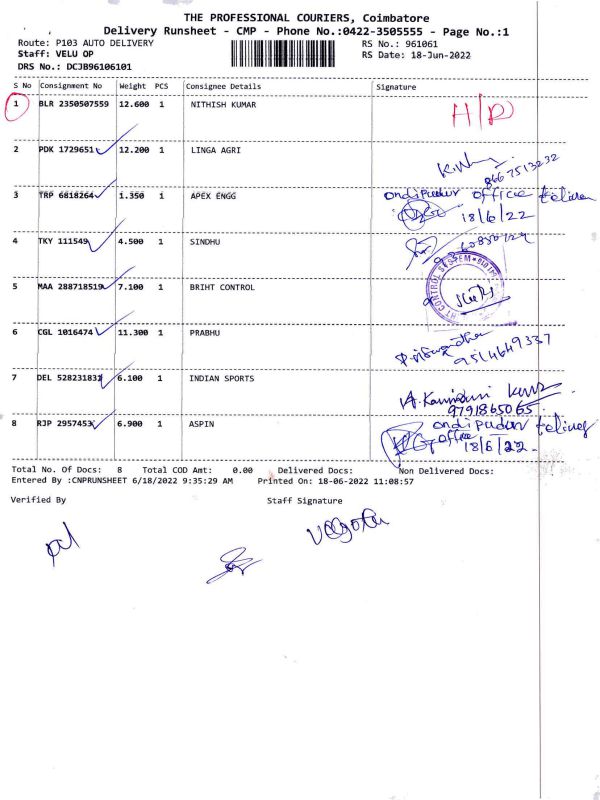 THE PROFESSIONAL COURIERS, Coimbatore
Delivery Runsheet - CMP - Phone No.:0422-3505555 - Page No.:1
Route: P103 AUTO DELIVERY RS No.: 961061
Staff: VELU OP RS Date: 18-Jun-2022
DRS No.: DCJB96106101
S No Consignment No Weight PCS Consignee Details Signature
1 BLR 2350507559 12.600 1 NITHISH KUMAR H/P
2 PDK 1729651 12.200 1 LINGA AGRI
8667513232
3 TRP 6818264 1.350 1 APEX ENGG ondipudur office
18/6/22
4 TKY 111549 4.500 1 SINDHU
5 MAA 288718519 7.100 1 BRIHT CONTROL
CONTROL SYSTEM
6 CGL 1016474 11.300 1 PRABHU
9514649337
7 DEL 528231832 6.100 1 INDIAN SPORTS
9791865065
8 RJP 2957453 6.900 1 ASPIN ondipudur
office
18/6/22
Total No. Of Docs: 8 Total COD Amt: 0.00 Delivered Docs: Non Delivered Docs:
Entered By :CNPRUNSHEET 6/18/2022 9:35:29 AM Printed On: 18-06-2022 11:08:57
Verified By Staff Signature